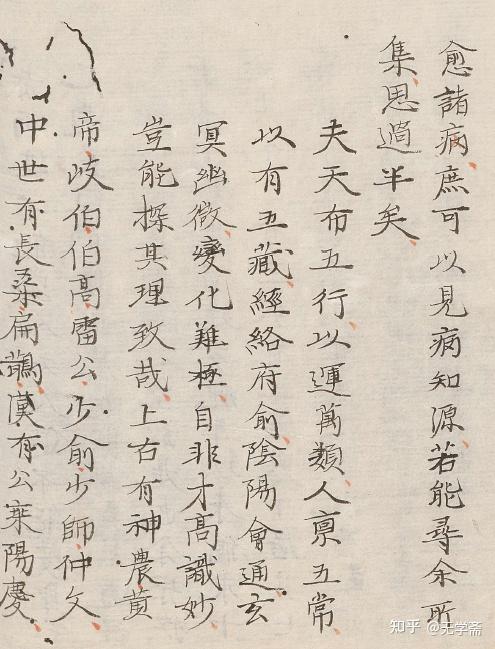 愈諸病庶可以見病知源若能尋余所
集思過半矣
夫天布五行以運萬類人稟五常
以有五藏經絡府俞陰陽會通玄
冥幽微變化難極自非才高識妙
豈能探其理致哉上古有神農黃
帝岐伯伯高雷公少俞少師仲文
中世有長桑扁鵲漢有公乘陽慶
知乎 @无学斋